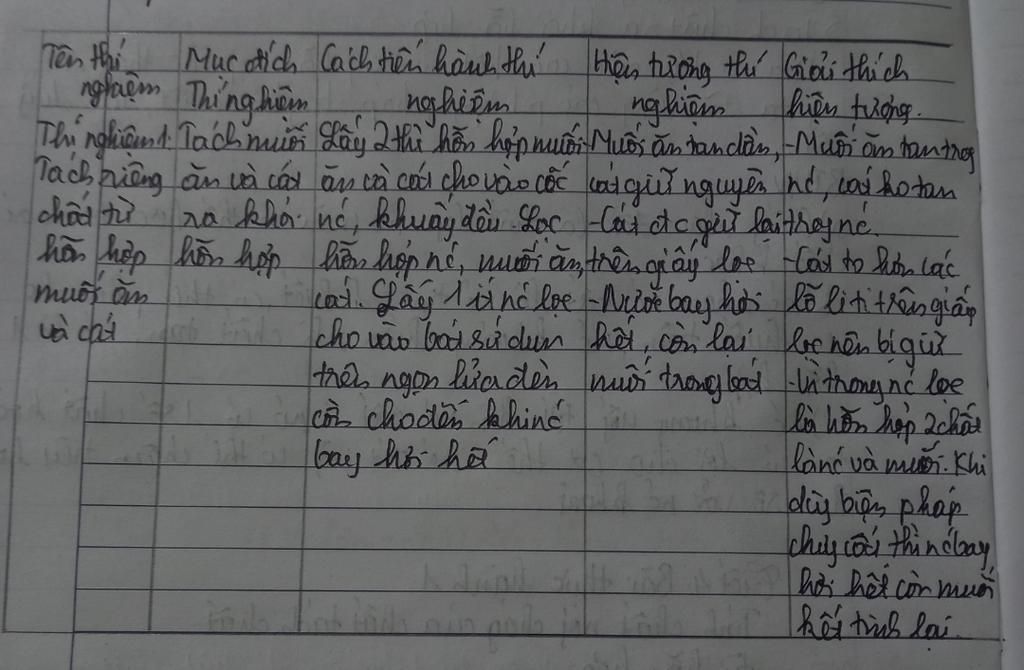 Tên thí
nghiệm
Mục đích
Thí nghiệm
Cách tiến hành thí
nghiệm
Hiện tượng thí
nghiệm
Giải thích
hiện tượng.
Thí nghiệm 1:
Tách riêng
chất từ
hỗn hợp
muối ăn
và cát
Tách muối
ăn và cát
ra khỏi
hỗn hợp
Lấy 2 thì hỗn hợp muối
ăn và cát cho vào cốc
nć, khuấy đều. Lọc
hỗn hợp nć, muối ăn,
cát. Lấy 1 ít nć lọc
cho vào bát sứ đun
trên ngọn lửa đèn
cồn cho đến khi nć
bay hơi hết
- Muối ăn tan dần,
cát giữ nguyên
- Cát đc giữ lại
trên giấy lọc
- Nước bay hơi
hết, còn lại
muối trong bát
- Muối ăn tan trog
nć, cát ko tan
trog nć.
- Cát to hơn các
lỗ li ti trên giấy
lọc nên bị giữ
- Vì trong nć lọc
là hỗn hợp 2 chất
là nć và muối. Khi
dùg biện pháp
chưg cất thì nć bay
hơi hết còn muối
kết tinh lại.